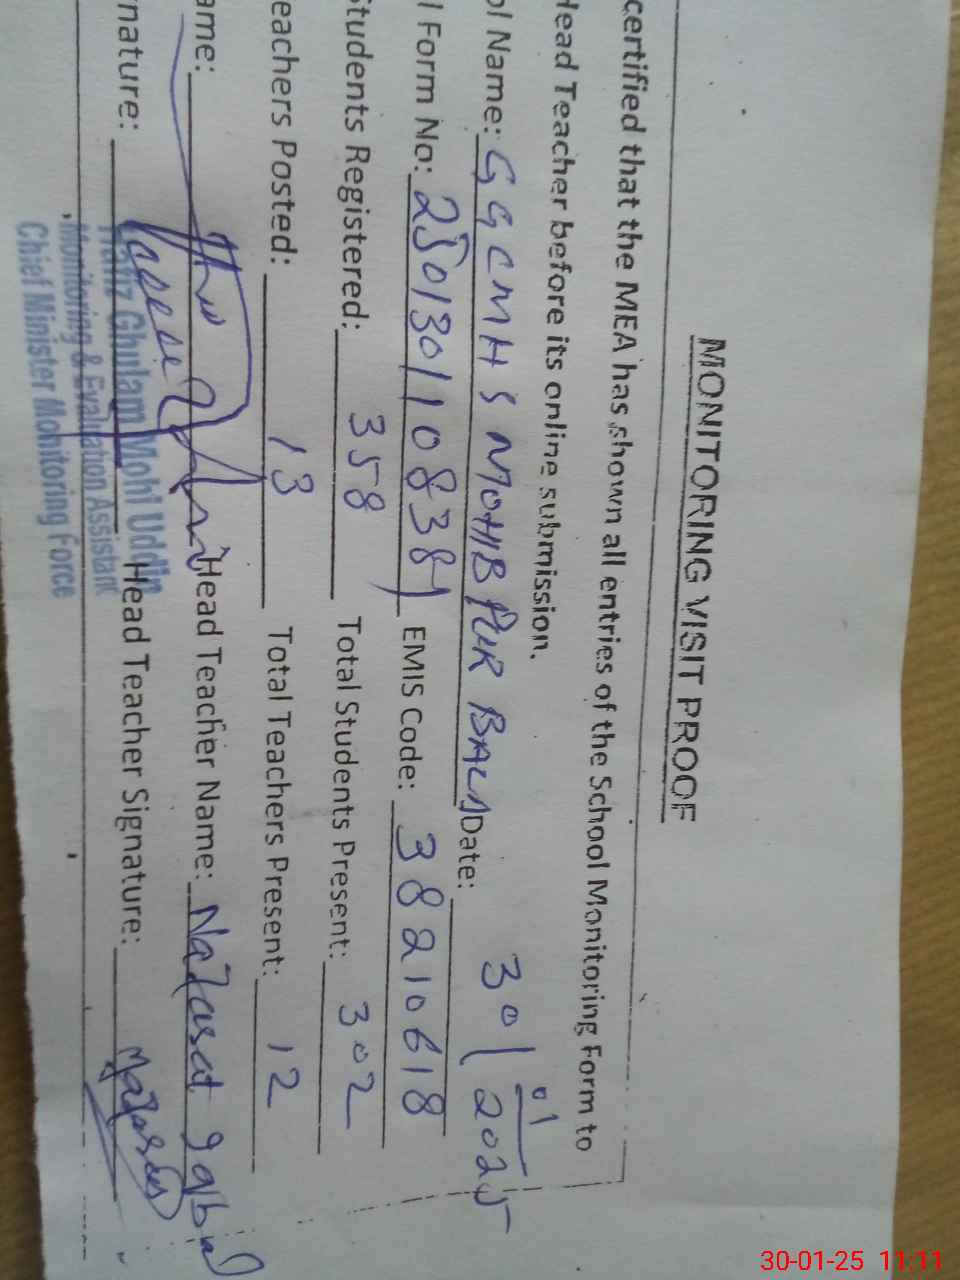 MONITORING VISIT PROOF
certified that the MEA has shown all entries of the School Monitoring Form to
Head Teacher before its online submission.
ol Name: GGCMHS MOHIB PUR BALA Date: 30/01/2025
l Form No: EMIS Code: 38210618
Students Registered: 358 Total Students Present: 302
eachers Posted: 13 Total Teachers Present: 12
ame: Head Teacher Name:
nature: Head Teacher Signature:
Hafiz Ghulam Mohi Uddin
Monitoring & Evaluation Assistant
Chief Minister Monitoring Force
30-01-25 11:11